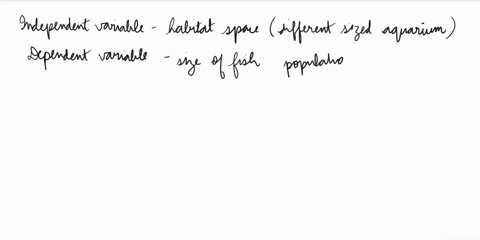 Independent variable - habitat space (different sized aquarium)
Dependent variable - size of fish populatio